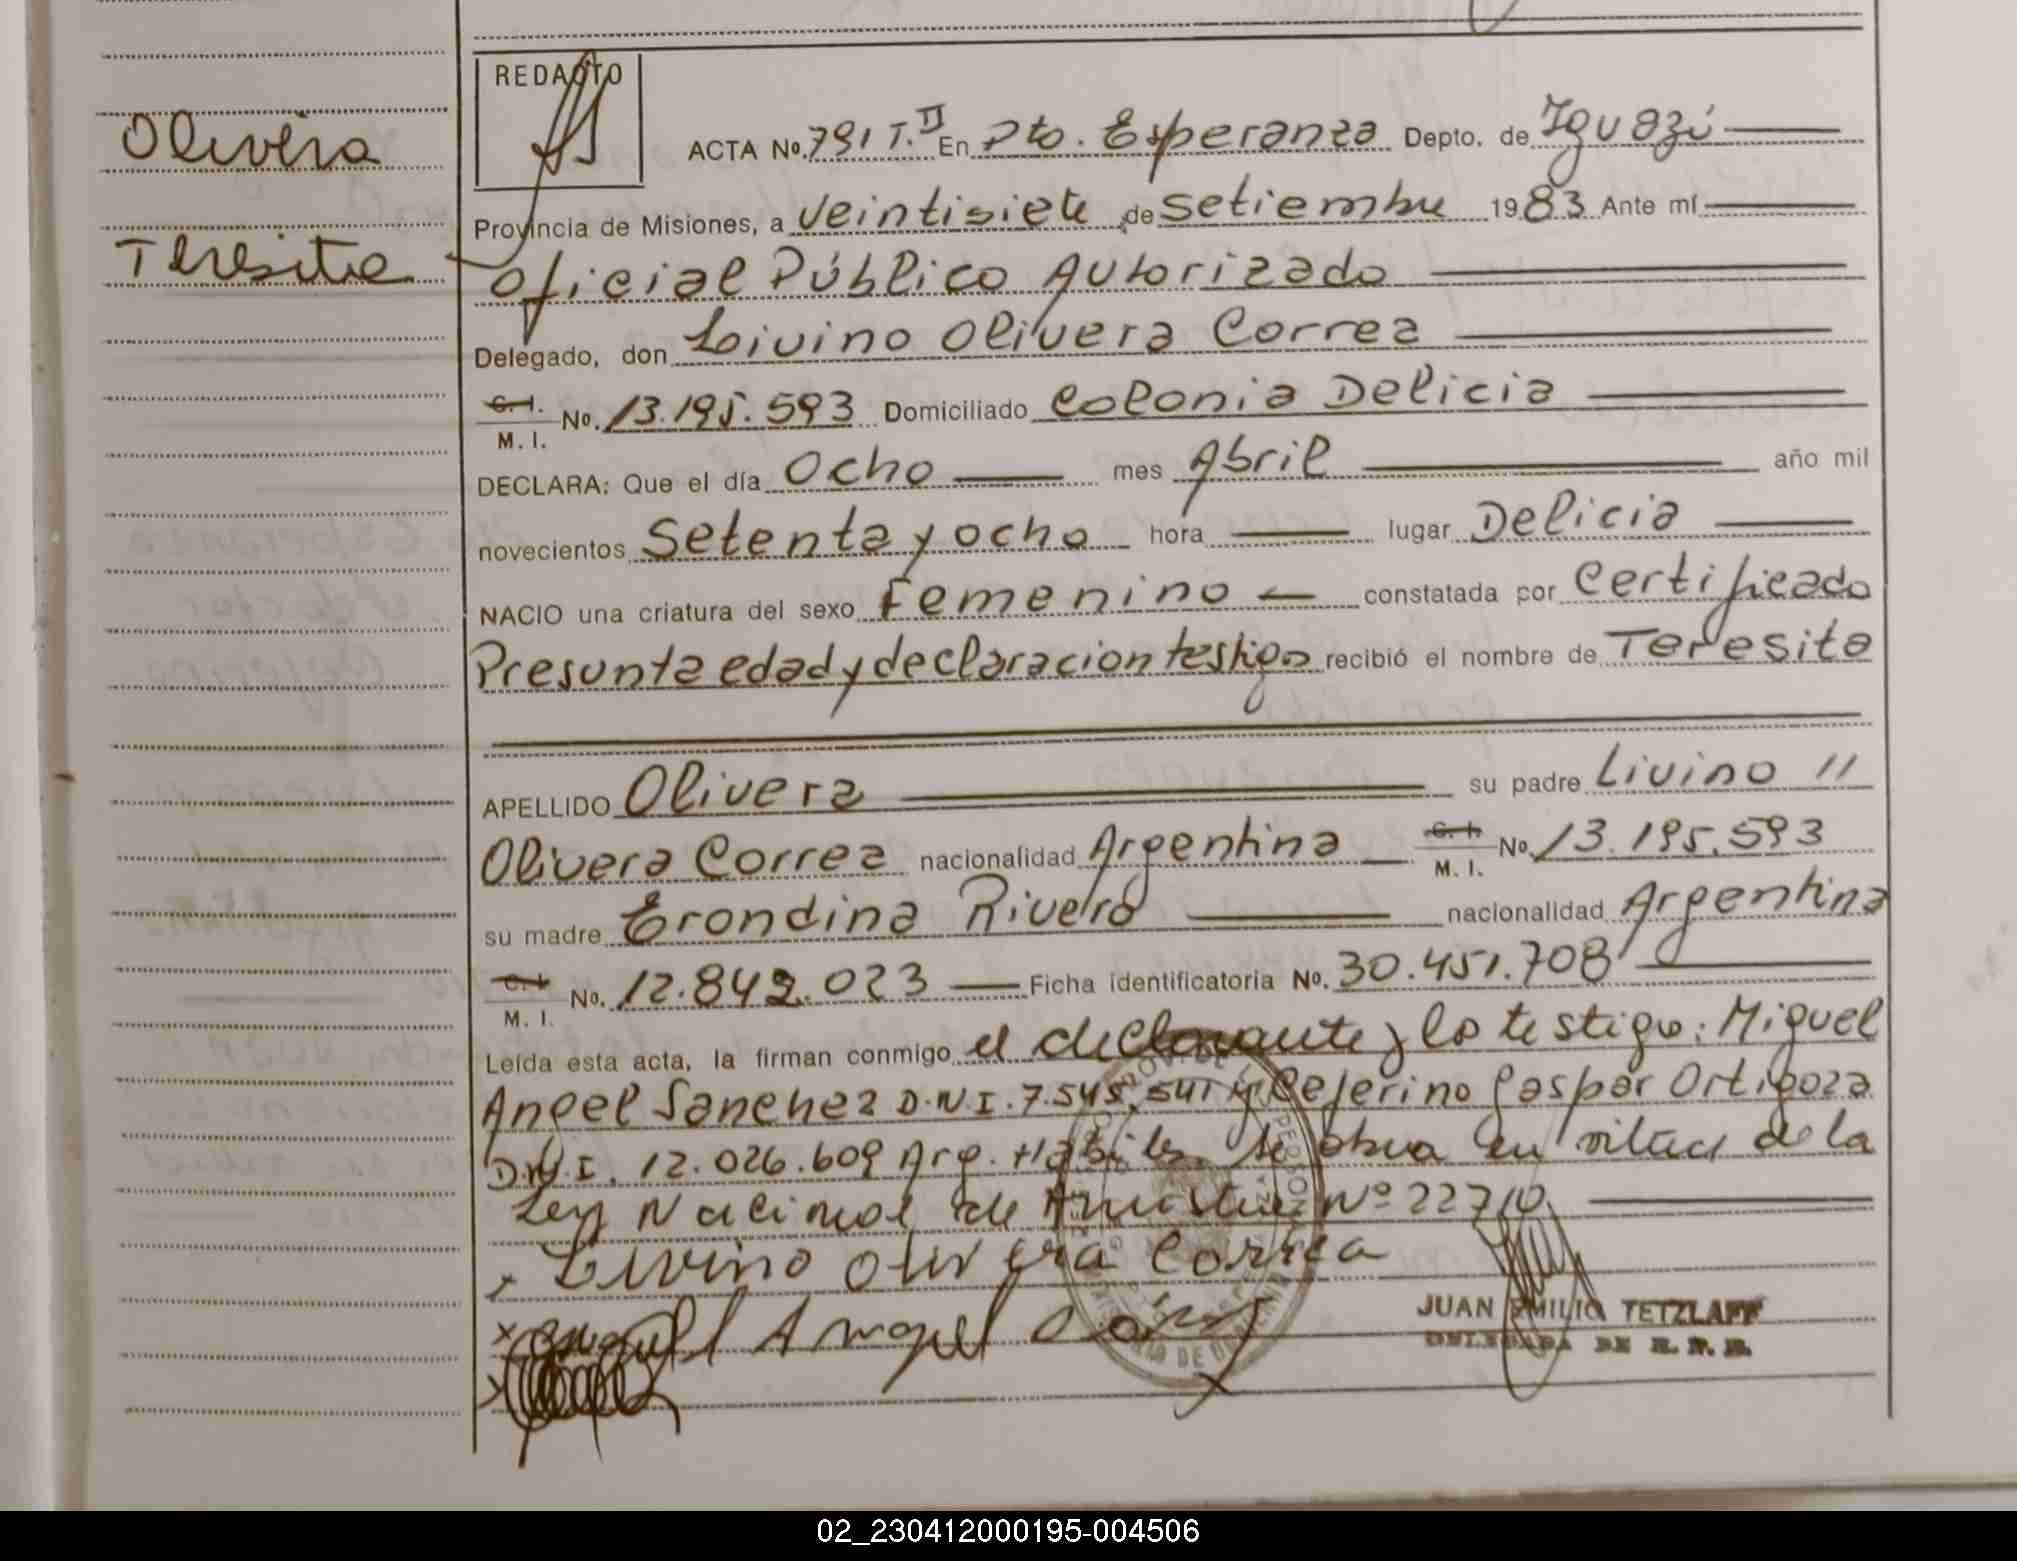 Olivera
Teresita
REDACTO
ACTA No. 791 T. II En Pto. Esperanza Depto. de Iguazú
Provincia de Misiones, a veintisiete de setiembre 1983 Ante mí
Oficial Público Autorizado
Delegado, don Livino Olivera Correa
C. I. M. I. No. 13.195.593 Domiciliado Colonia Delicia
DECLARA: Que el día Ocho mes Abril año mil
novecientos Setenta y ocho hora lugar Delicia
NACIO una criatura del sexo Femenino constatada por Certificado
Presunta edad y declaracion testigo recibió el nombre de Teresita
APELLIDO Olivera su padre Livino //
Olivera Correa nacionalidad Argentina C. I. M. I. No. 13.195.593
su madre Erondina Rivero nacionalidad Argentina
C. I. M. I. No. 12.842.023 Ficha identificatoria No. 30.451.708
Leída esta acta, la firman conmigo el declarante y lo testigo: Miguel
Angel Sanchez D.N.I. 7.545.541 y Ceferino Gaspar Ortigoza
D.N.I. 12.026.609 Arg. Habiles. Se obra en vitud de la
Ley Nacional de Amistia Nº 22710
x Livino Olivera Correa
x Miguel Angel
JUAN EMILIO TETZLAFF
DELEGADA DE R. P. P.
02_230412000195-004506